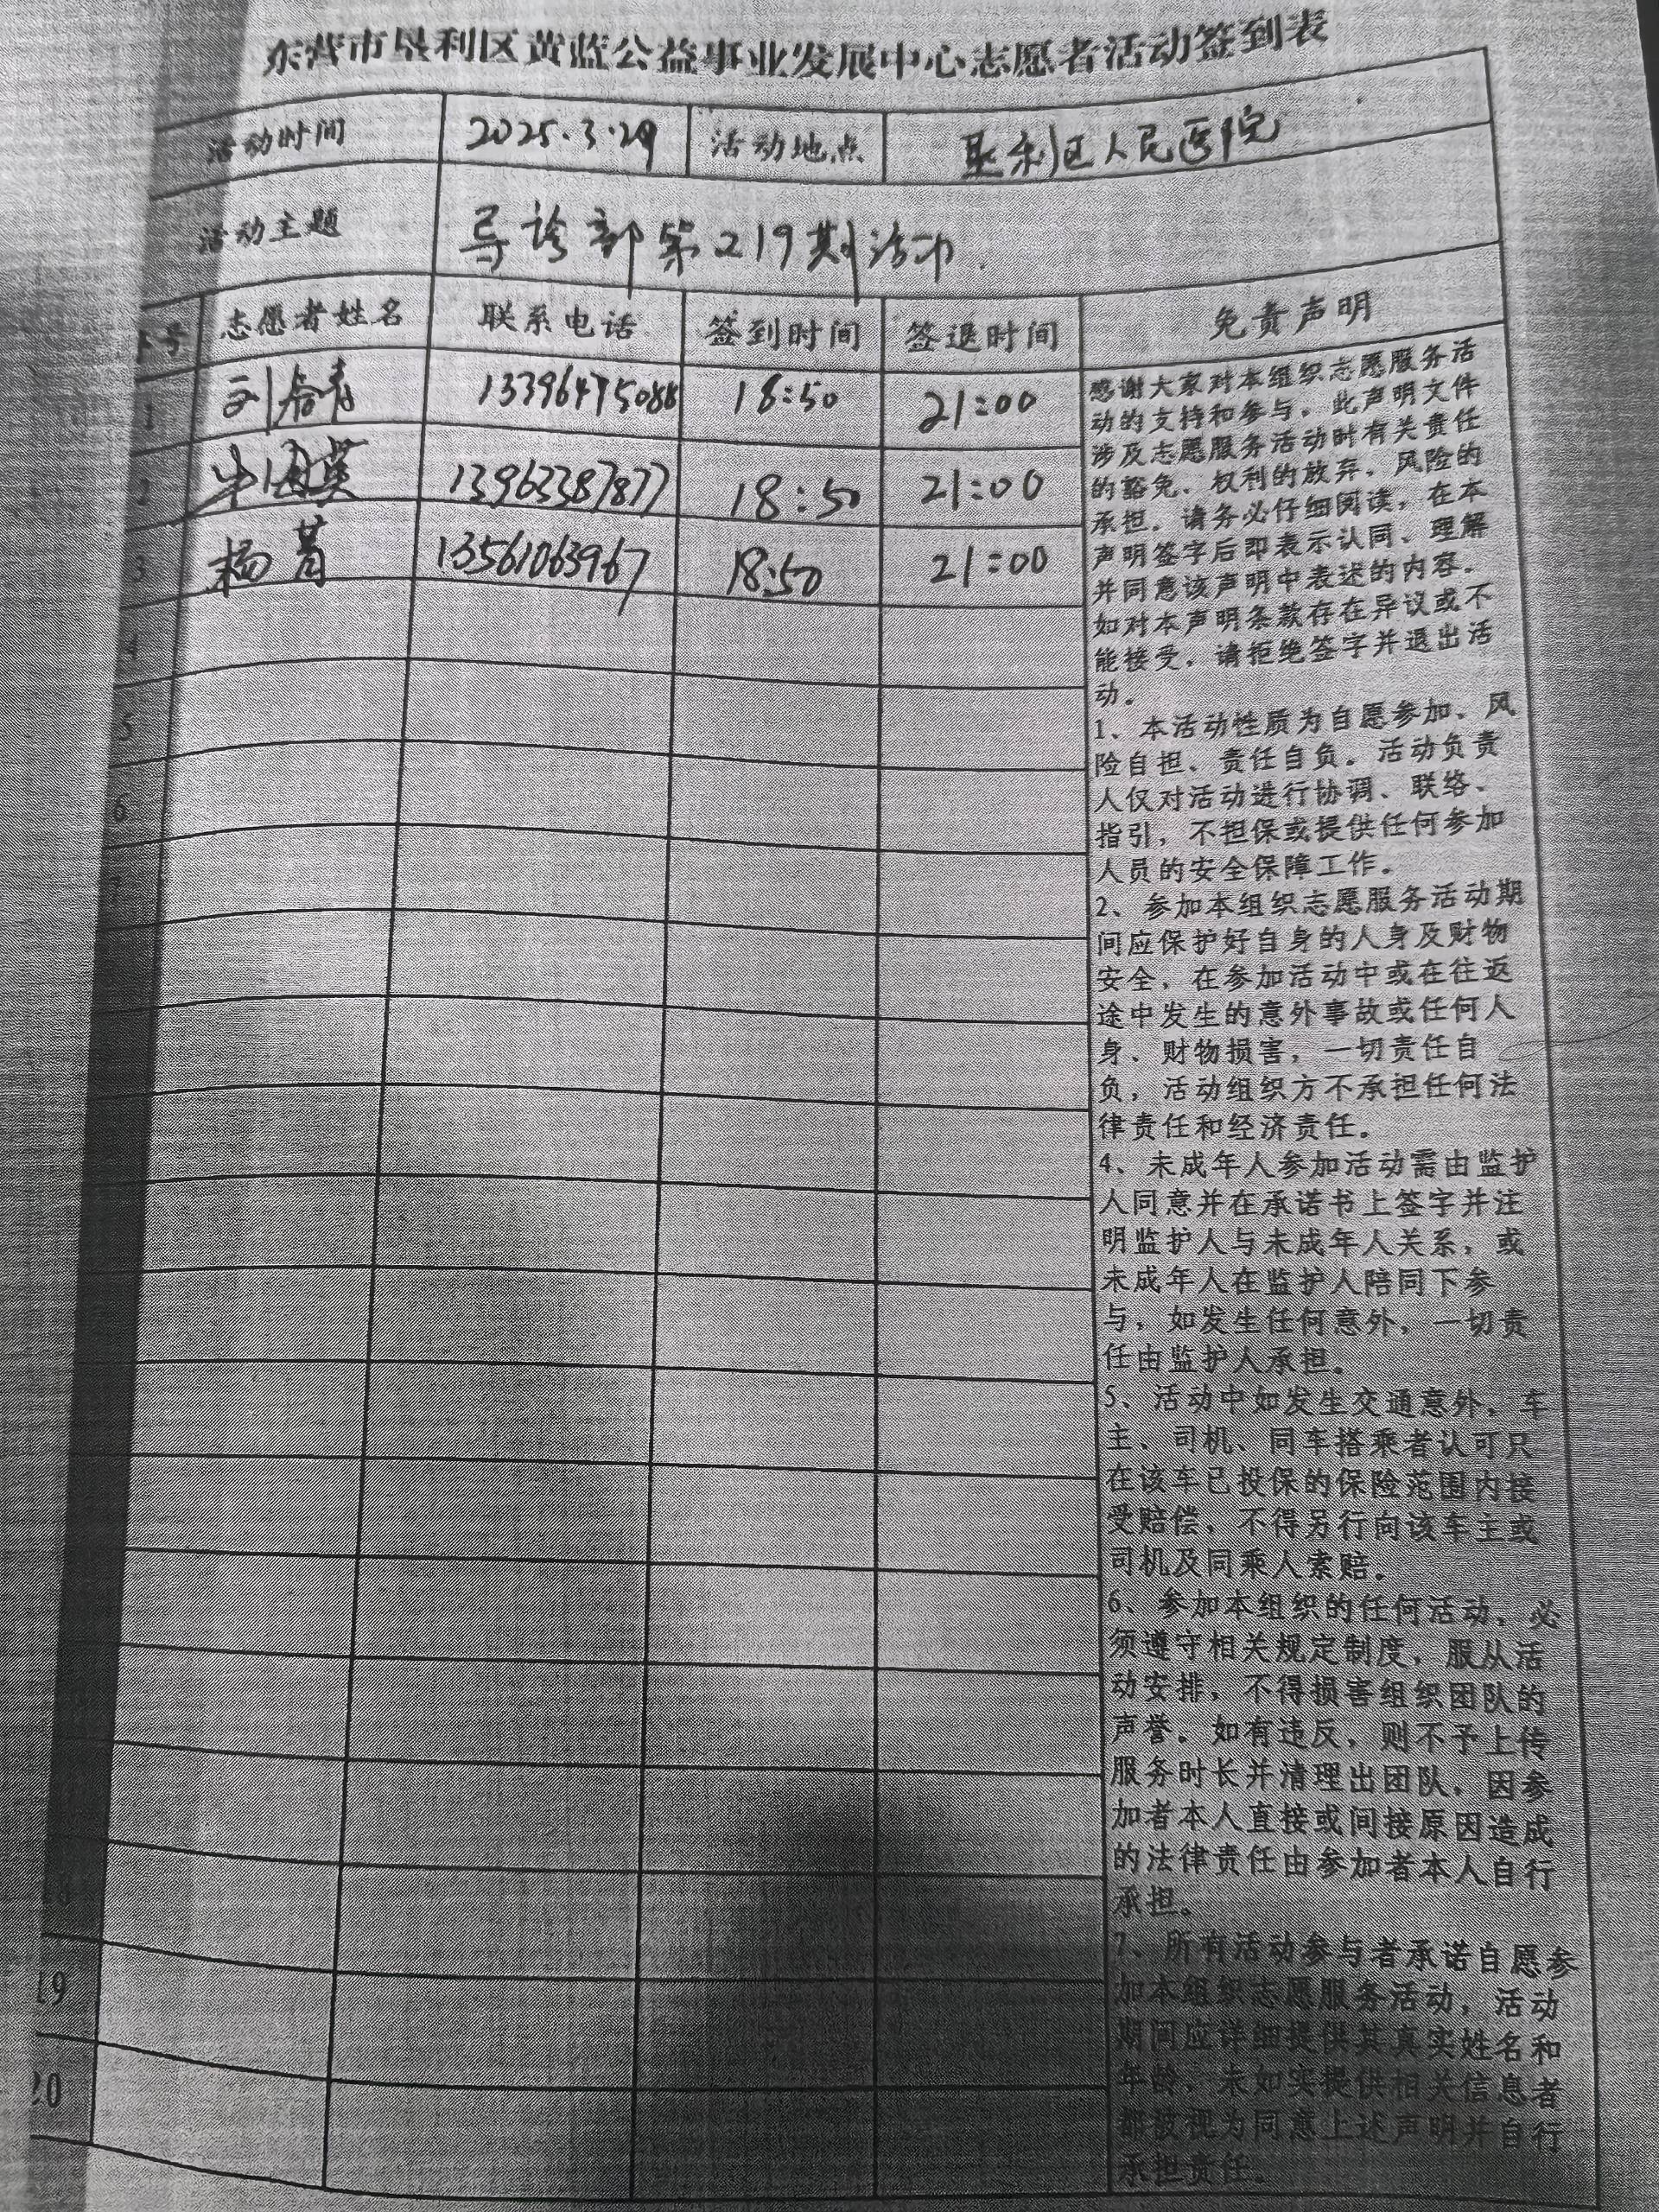 东营市垦利区黄蓝公益事业发展中心志愿者活动签到表
活动时间 2025.3.29 活动地点 垦利区人民医院
活动主题 导诊部第219期活动
序号 志愿者姓名 联系电话 签到时间 签退时间 免责声明
1 刘 18:50 21:00
2 牛国英 13963387877 18:50 21:00
3 杨菁 13561063967 18:50 21:00
4
5
6
7
18
19
20
感谢大家对本组织志愿服务活
动的支持和参与，此声明文件
涉及志愿服务活动时有关责任
的豁免、权利的放弃、风险的
承担。请务必仔细阅读，在本
声明签字后即表示认同、理解
并同意该声明中表述的内容。
如对本声明条款存在异议或不
能接受，请拒绝签字并退出活
动。
1、本活动性质为自愿参加、风
险自担、责任自负。活动负责
人仅对活动进行协调、联络、
指引，不担保或提供任何参加
人员的安全保障工作。
2、参加本组织志愿服务活动期
间应保护好自身的人身及财物
安全，在参加活动中或在往返
途中发生的意外事故或任何人
身、财物损害，一切责任自
负，活动组织方不承担任何法
律责任和经济责任。
4、未成年人参加活动需由监护
人同意并在承诺书上签字并注
明监护人与未成年人关系，或
未成年人在监护人陪同下参
与，如发生任何意外，一切责
任由监护人承担。
5、活动中如发生交通意外，车
主、司机、同车搭乘者认可只
在该车已投保的保险范围内接
受赔偿，不得另行向该车主或
司机及同乘人索赔。
6、参加本组织的任何活动，必
须遵守相关规定制度，服从活
动安排，不得损害组织团队的
声誉。如有违反，则不予上传
服务时长并清理出团队，因参
加者本人直接或间接原因造成
的法律责任由参加者本人自行
承担。
7、所有活动参与者承诺自愿参
加本组织志愿服务活动，活动
期间应详细提供其真实姓名和
年龄，未如实提供相关信息者
都被视为同意上述声明并自行
承担责任。